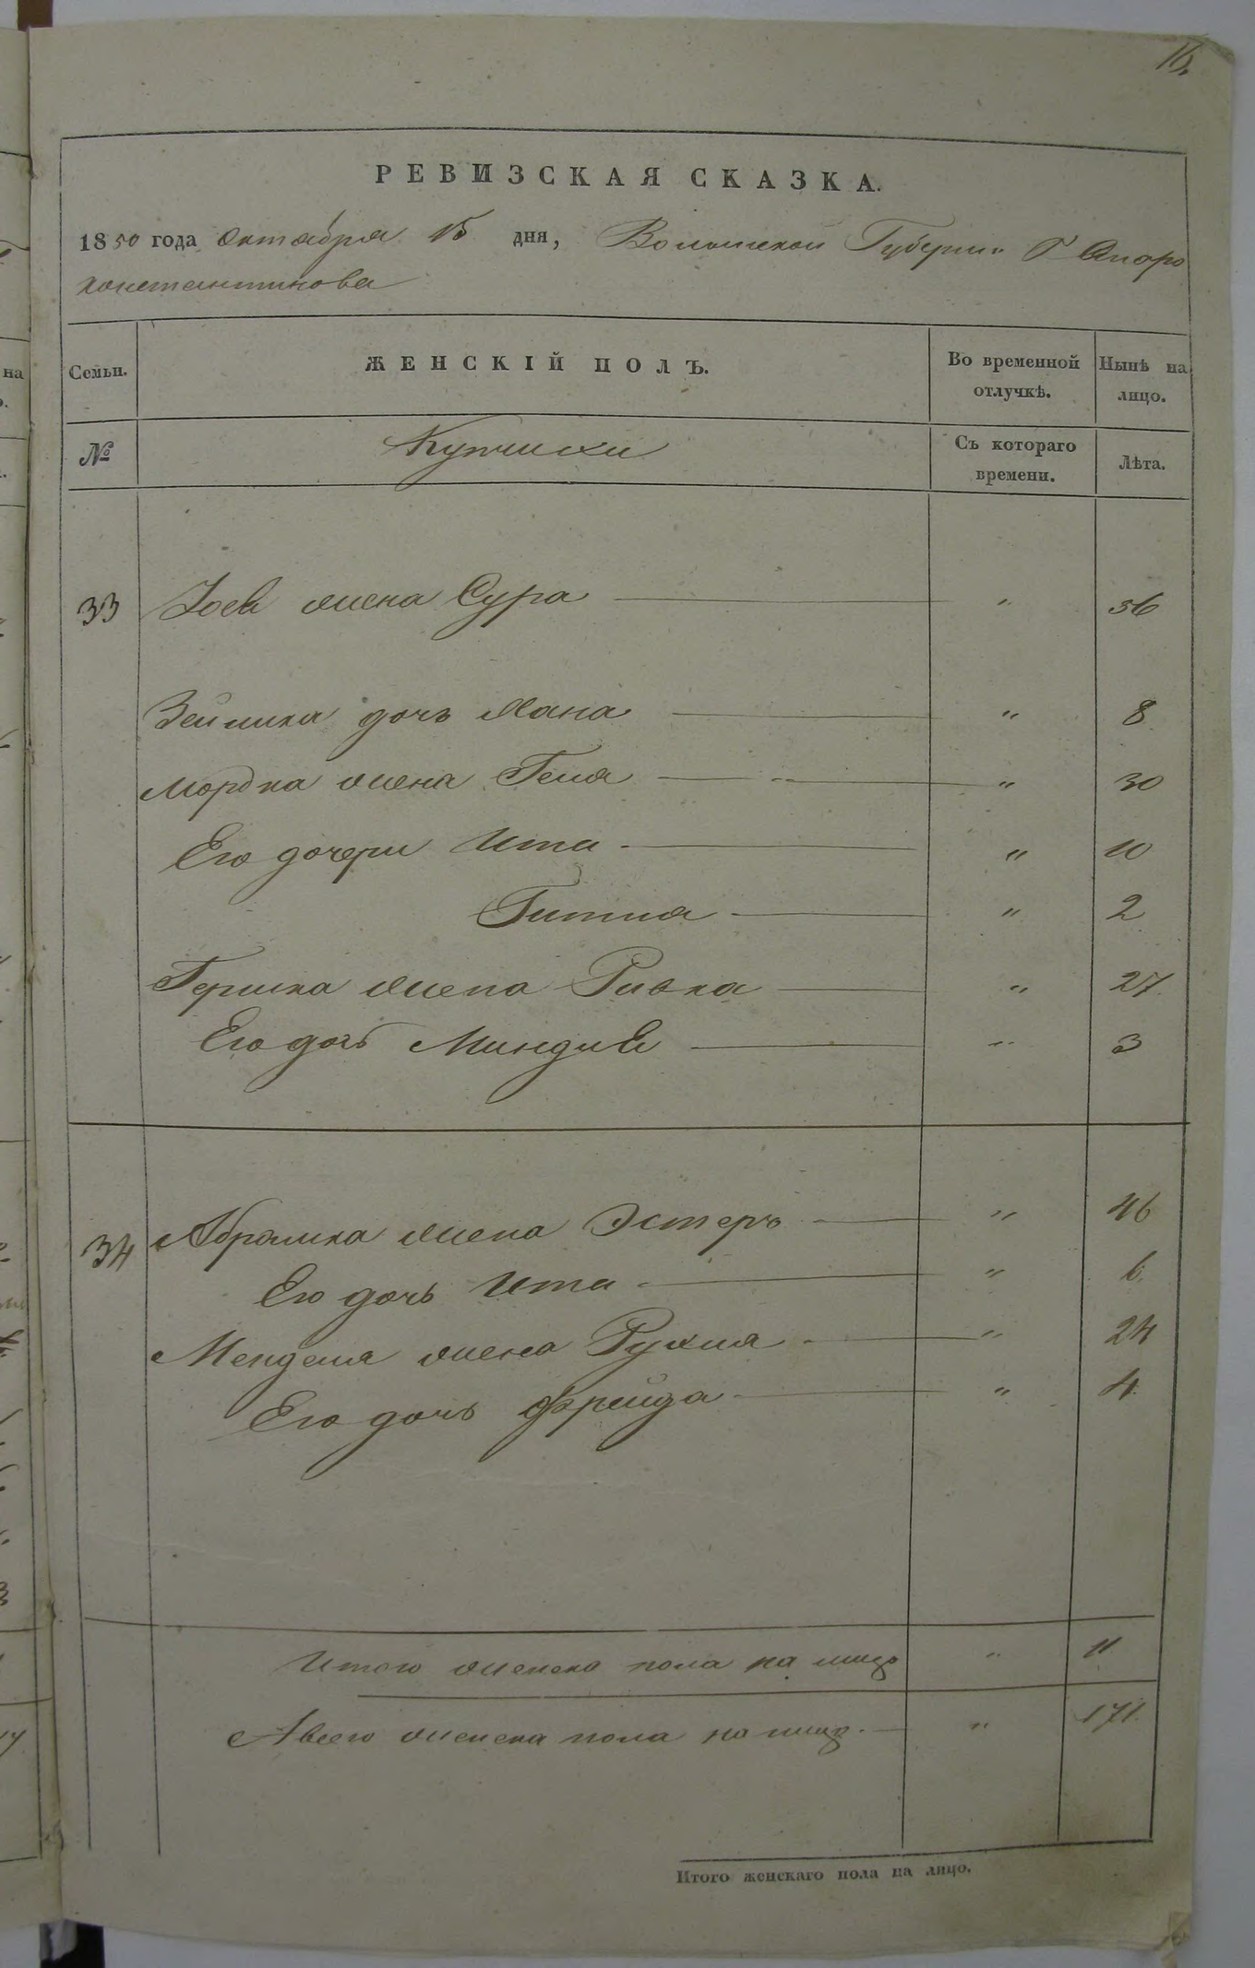 16.
РЕВИЗСКАЯ СКАЗКА.
1850 года Октября 15 дня, Волынской Губернии Г Старо
константинова
Семьи. ЖЕНСКІЙ ПОЛЪ. Во временной отлучкѣ. Нынѣ на лицо.
№ Съ котораго времени. Лѣта.
33 жена Сура — " 56
дочь Хана — " 8
Мордка жена Геня — " 30
Его дочери Ита — " 10
Гитля — " 2
Гершка жена Ривка — " 27
Его дочь Миндля — " 3
34 Абрамка жена Эстеръ — " 46
Его дочь Ита — " 6
Менделя жена Рухля — " 24
Его дочь Фрейда — " 4
Итого женска пола на лицо " 11
А всего женска пола на лицо. — " 171.
Итого женскаго пола на лицо.